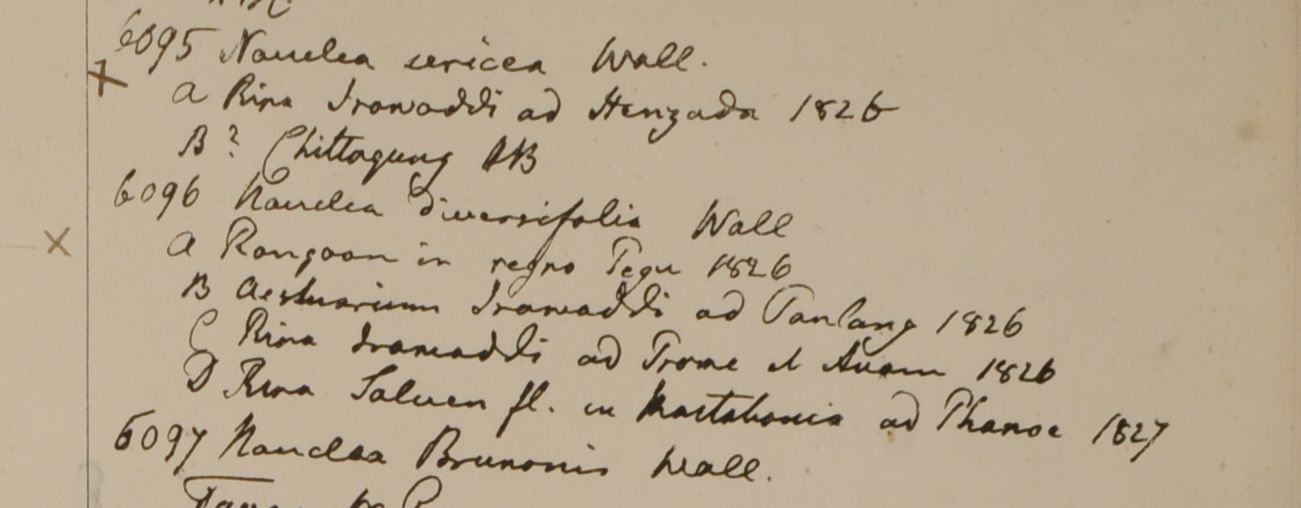 6095 Nauclea sericea Wall.
a Ripa Irawaddi ad Henzada 1826
B? Chittagung HB
6096 Nauclea diversifolia Wall
a Rangoon in regno Pegu 1826
B Aestuarium Irawaddi ad Panlang 1826
C Ripa Irawaddi ad Prome et Avam 1826
D Ripa Saluen fl. in Martabania ad Phanoe 1827
6097 Nauclea Brunonis Wall.